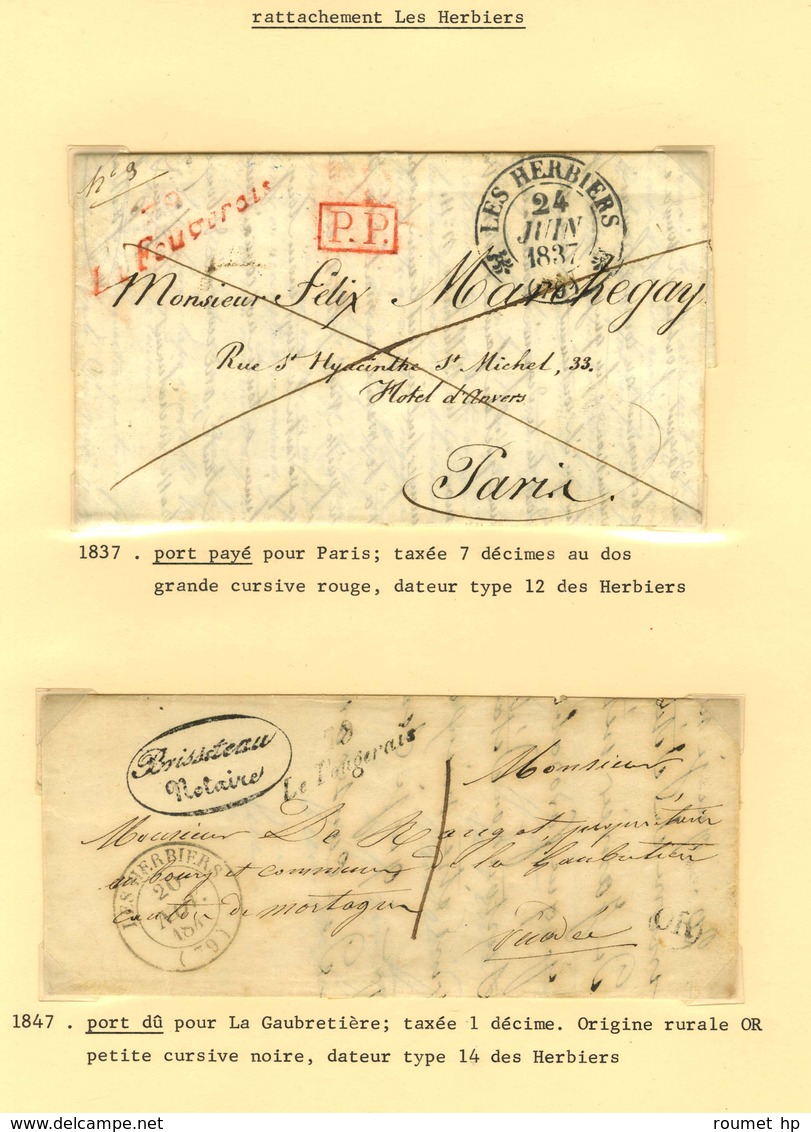 rattachement Les Herbiers
Nº 3
79
Le Fougerais
P.P.
LES HERBIERS
24
JUIN
1837
Monsieur Félix Marchegay
Rue St Hyacinthe St Michel, 33.
Hotel d'anvers
Paris.
1837 . port payé pour Paris; taxée 7 décimes au dos
grande cursive rouge, dateur type 12 des Herbiers
Brisseteau
Notaire
78
Le Fougerais
1
Monsieur
Monsieur De Rangot, propriétaire
au bourg et commune de la Gaubretière
canton de mortagne
Vendée
LES HERBIERS
20
NOV.
184
(79)
OR
1847 . port dû pour La Gaubretière; taxée 1 décime. Origine rurale OR
petite cursive noire, dateur type 14 des Herbiers
www.delcampe.net
roumet hp